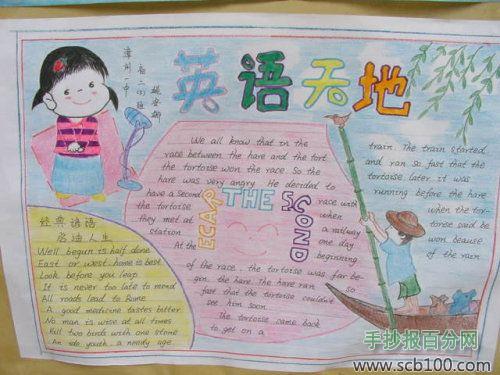 漳州一中
高二(3)班
英语天地
We all know that in the
race between the hare and the tort
the tortoise won the race. So the
hare was very angry. He decided to
have a second
the tortoise
they met at
station
At the
THE
SECOND
race with
when
a railway
one day
beginning
of the race, the tortoise was far be-
gin the hare. The hare ran so
fast that the tortoise couldn't
see him soon.
The tortoise came back
to get on a
train. The train started
and ran so fast that the
tortoise later it was
running before the hare
when the tor-
toise said he
won beause
of the rain
经典谚语
启迪人生
Well begun is half done
East or west home is best
Look before you leap
It is never too late to mend
All roads lead to Rome
A good medicine tastes bitter
No man is wise at all times
Kill two birds with one stone
An ide youth, a needy age
手抄报百分网
www.scb100.com